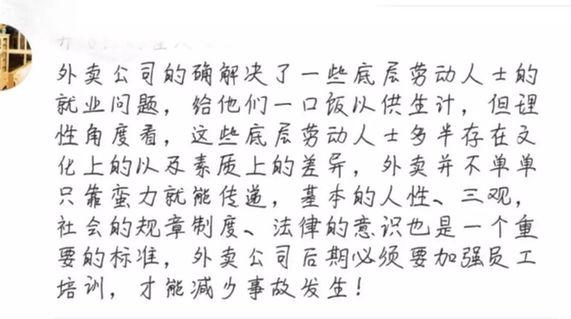 外卖公司的确解决了一些底层劳动人士的
就业问题，给他们一口饭以供生计，但理
性角度看，这些底层劳动人士多半存在文
化上的以及素质上的差异，外卖并不单单
只靠蛮力就能传递，基本的人性、三观，
社会的规章制度、法律的意识也是一个重
要的标准，外卖公司后期必须要加强员工
培训，才能减少事故发生！